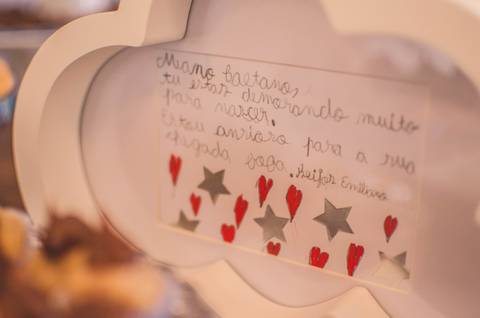 Mano Caetano,
tu estas demorando muito
para nascer.
Estou anrioro para a sua
chegada fofa. Beijos Emiliano